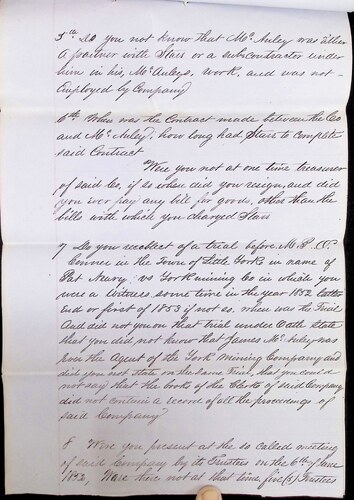 5th Do you not know that Mc Auley was either
a partner with Starr or a subcontractor under
him in his, Mc Auleys, work, and was not
employed by Company
6th When was the Contract made between the Co
and Mc Auley, how long had Starr to complete
said Contract
Were you not at one time treasurer
of said Co, if so when did you resign, and did
you ever pay any bill for goods, other than the
bills with which you charged Starr
7 Do you recollect of a trial before M. P. O
Conner in the Town of Little York in name of
Pat Navy vs York mining Co in which you
were a Witness some time in the year 1852 latter
end or first of 1853 if not so, when was the Trial
And did not you on that trial under Oath state
that you did not know that James Mc Auley was
not the Agent of the York Mining Company and
did you not state on the same Trial, that you could
not say that the books of the Clerk of said Company
did not contain a record of all the proceedings of
said Company
8 Were you present at the so called meeting
of said Company by its Trustees on the 6th of June
1852, Were there not at that time, five (5) Trustees